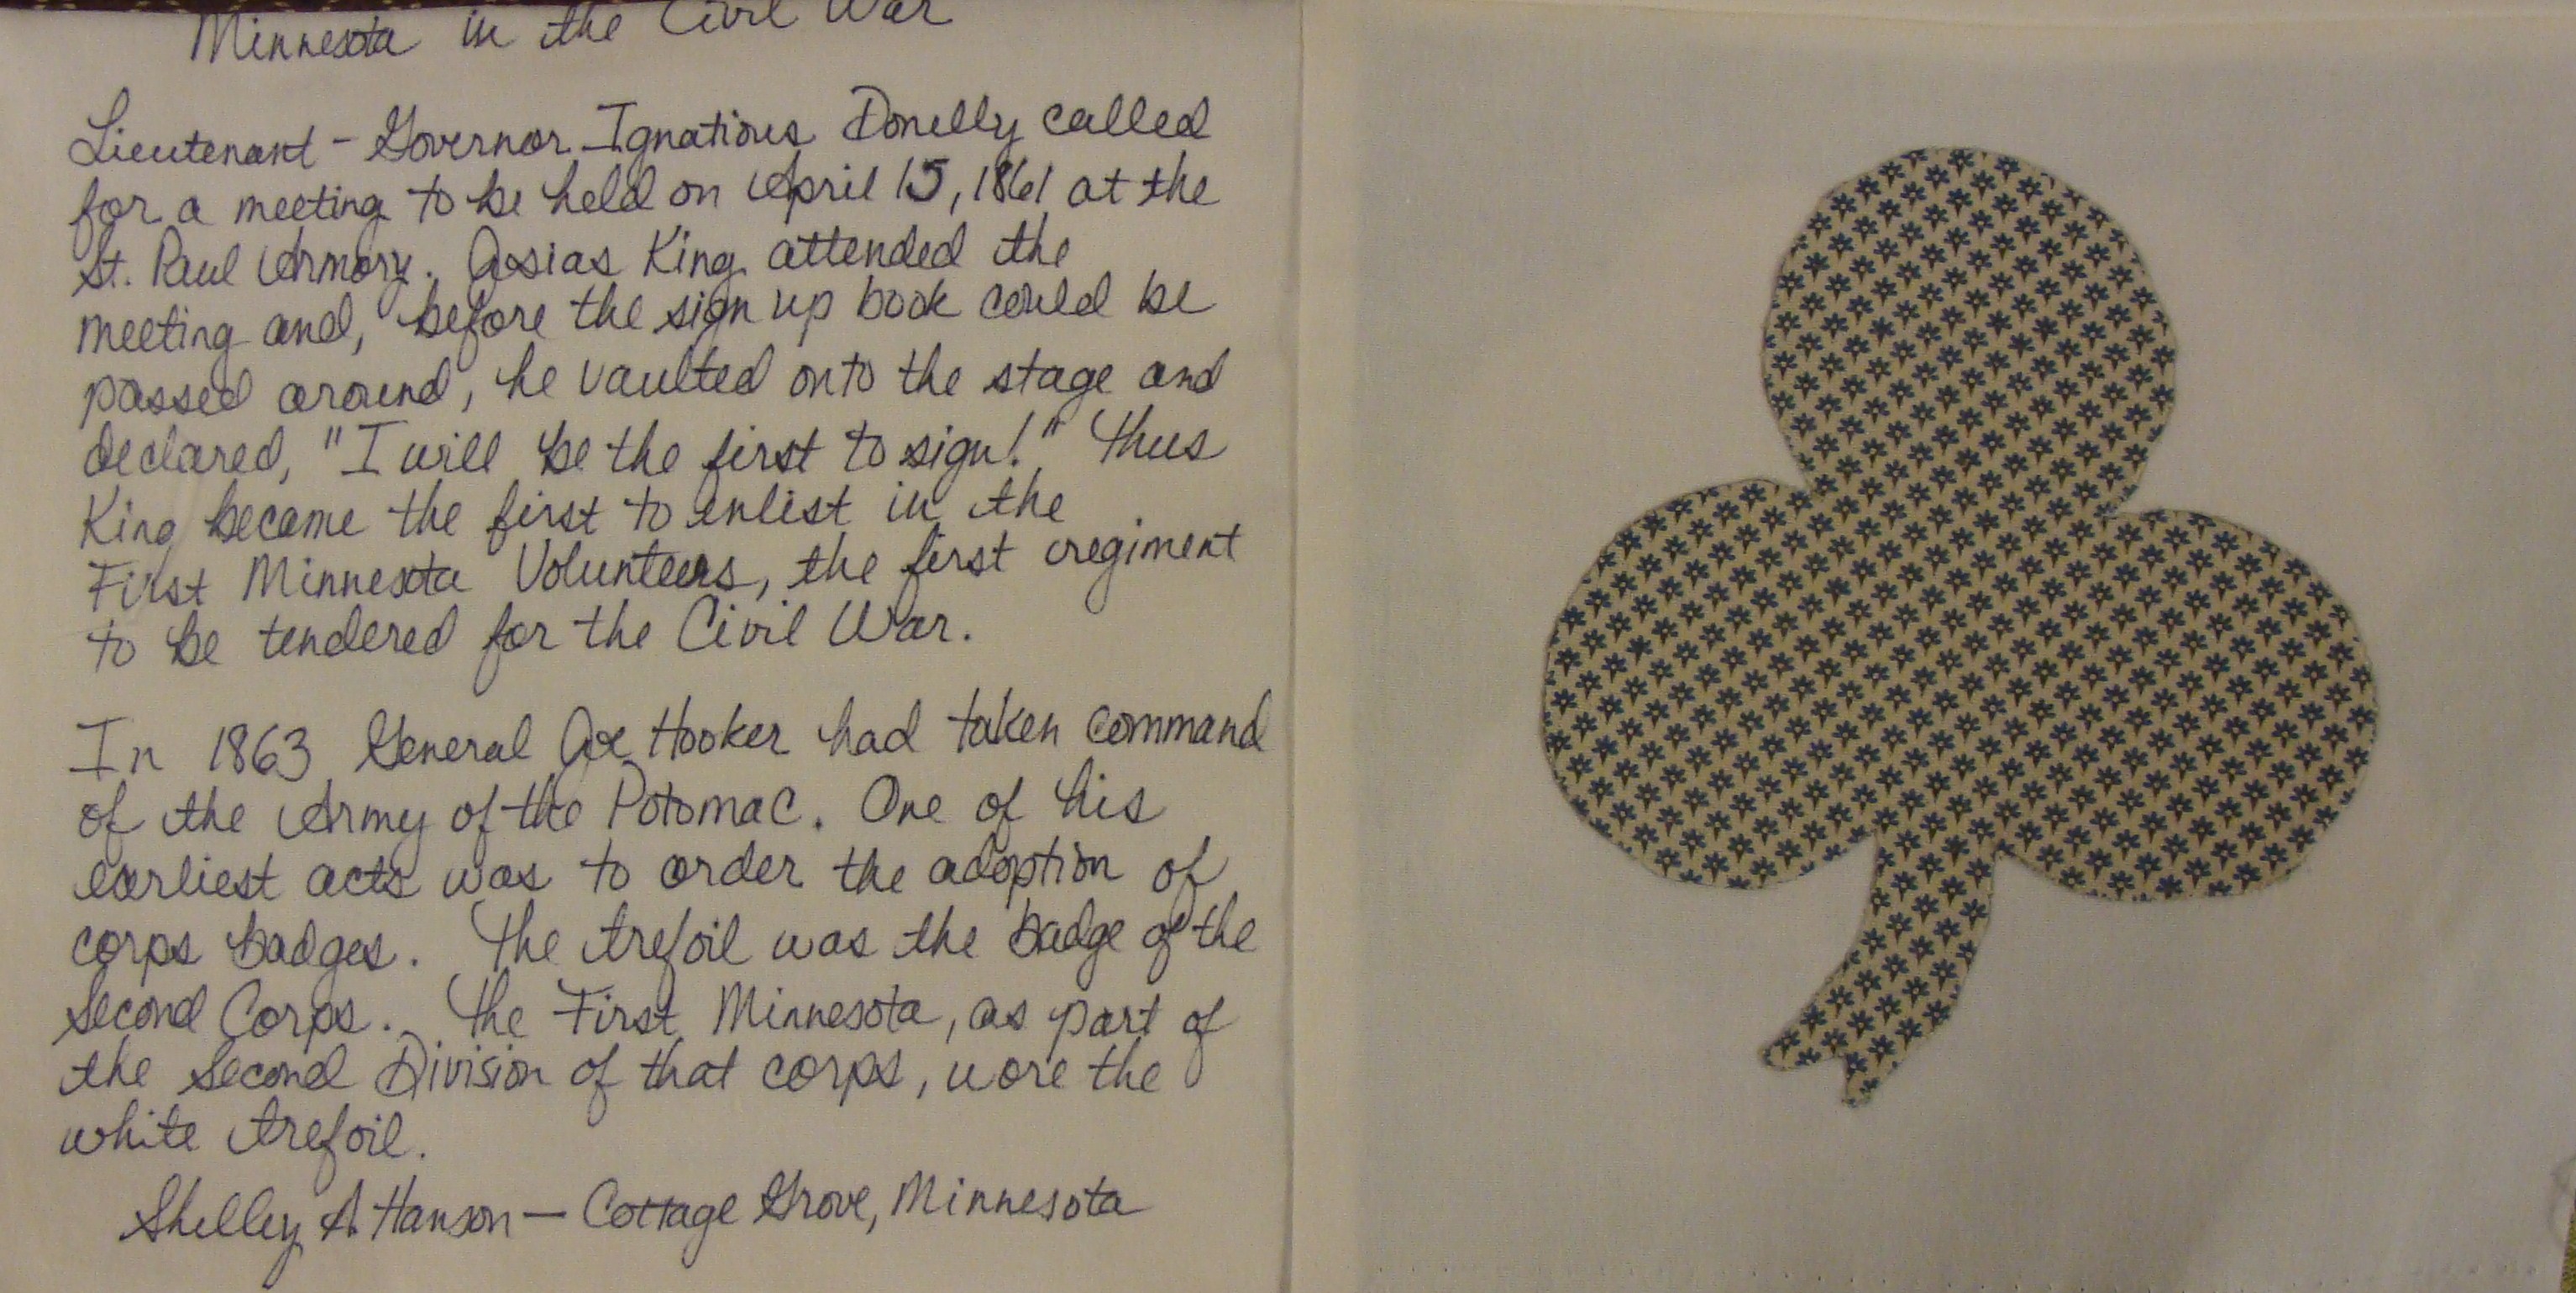 Minnesota in the Civil War
Lieutenant-Governor Ignatious Donelly called
for a meeting to be held on April 15, 1861 at the
St. Paul Armory. Josias King attended the
meeting and, before the sign up book could be
passed around, he vaulted onto the stage and
declared, "I will be the first to sign!" Thus
King became the first to enlist in the
First Minnesota Volunteers, the first regiment
to be tendered for the Civil War.
In 1863 General Joe Hooker had taken command
of the Army of the Potomac. One of his
earliest acts was to order the adoption of
corps badges. The trefoil was the badge of the
Second Corps. The First Minnesota, as part of
the Second Division of that corps, wore the
white trefoil.
Shelley A Hanson - Cottage Grove, Minnesota